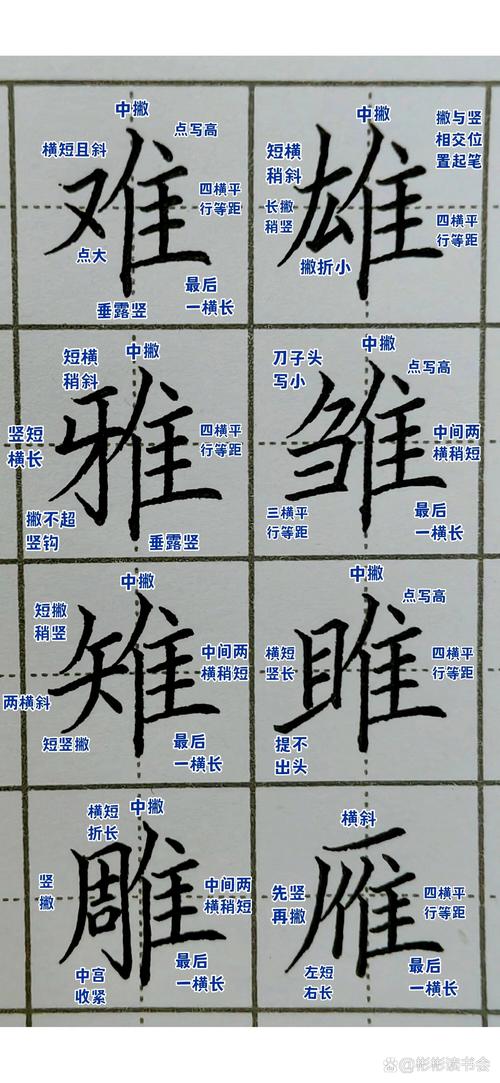 中撇
点写高
横短且斜
难
四横平
行等距
点大
最后
一横长
垂露竖
中撇
撇与竖
相交位
置起笔
短横
稍斜
雄
长撇
稍竖
四横平
行等距
撇折小
中撇
短横
稍斜
雅
竖短
横长
四横平
行等距
撇不超
竖钩
垂露竖
中撇
刀子头
写小
点写高
雏
中间两
横稍短
三横平
行等距
最后
一横长
中撇
短撇
稍竖
雉
中间两
横稍短
两横斜
短竖撇
最后
一横长
中撇
点写高
横短
竖长
雎
四横平
行等距
提不
出头
中撇
横短
折长
雕
竖
撇
中间两
横稍短
中宫
收紧
最后
一横长
横斜
雁
先竖
再撇
四横平
行等距
左短
右长
最后
一横长
@彬彬读书会